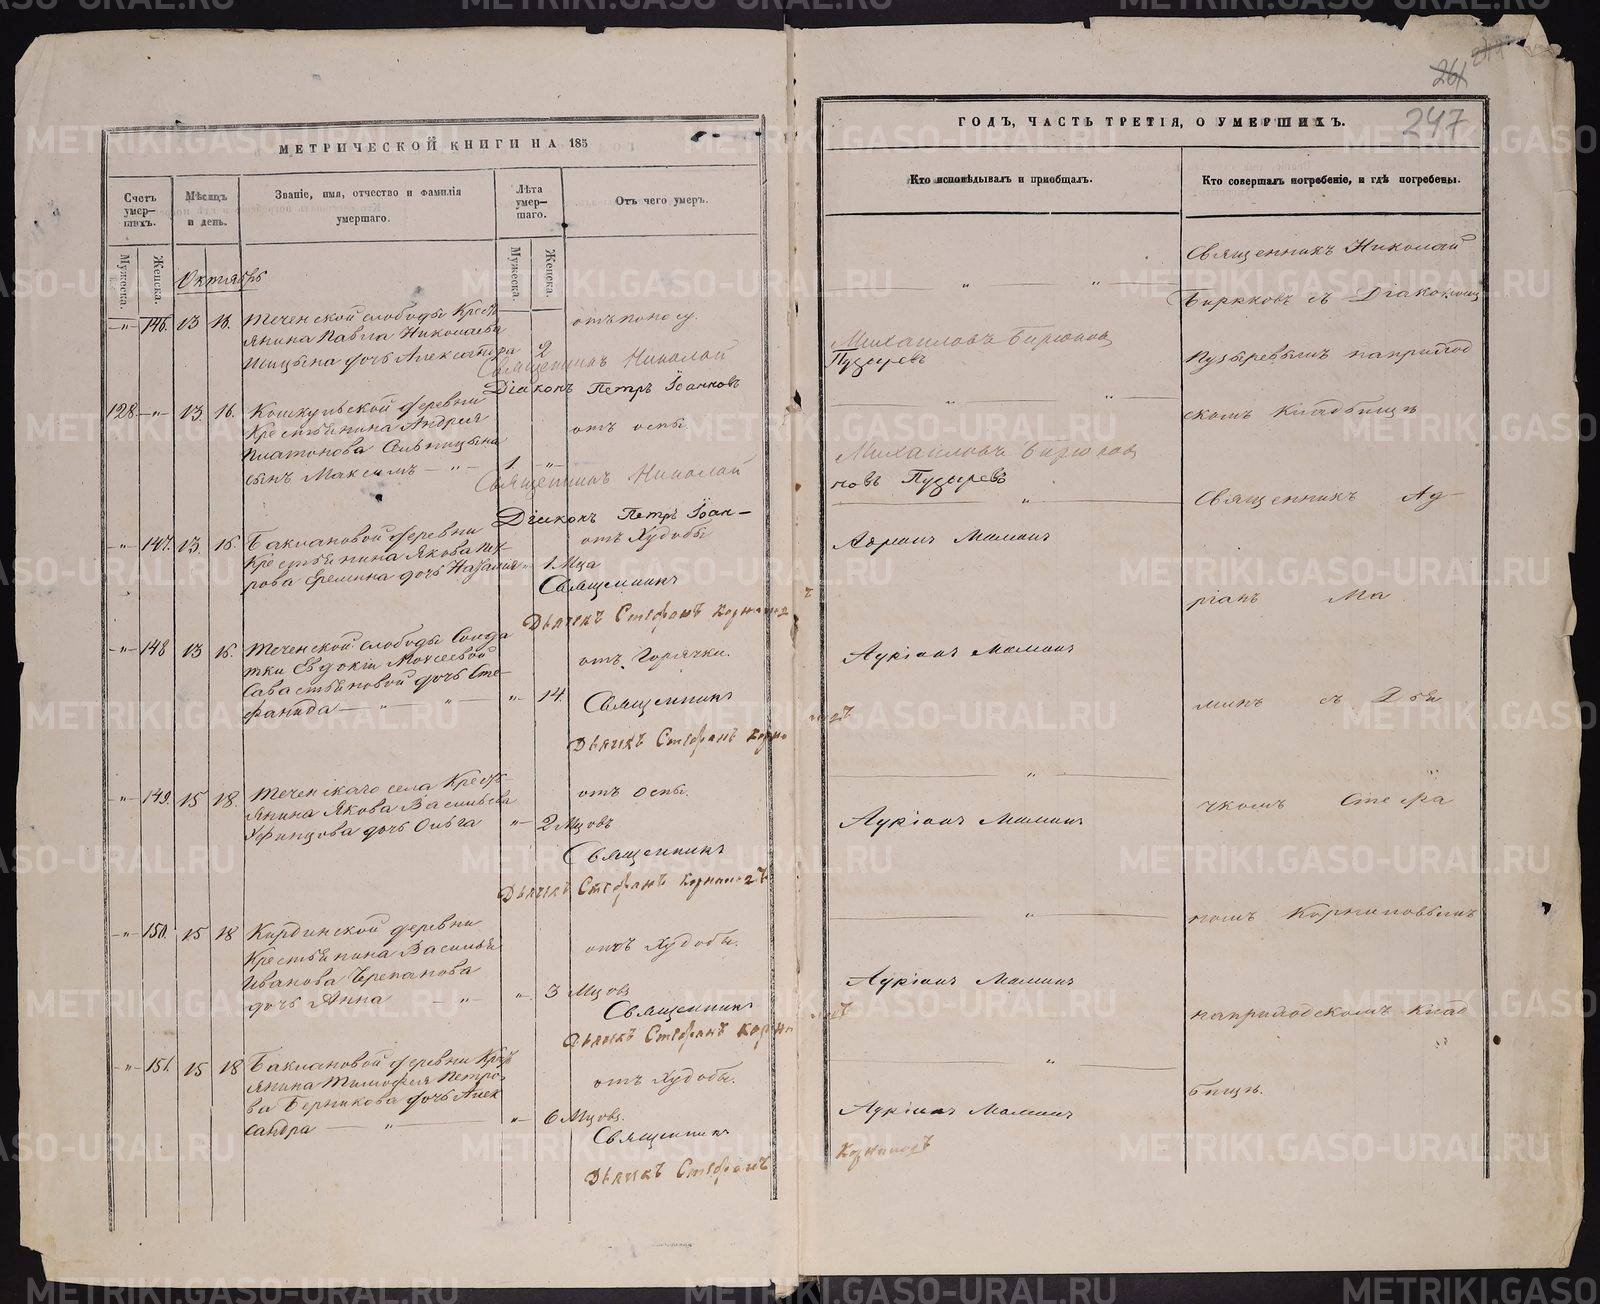 МЕТРИЧЕСКОЙ КНИГИ НА 185
Счетъ умер-шихъ.
Мѣсяцъ и день.
Званіе, имя, отчество и фамилія умершаго.
Лѣта умер-шаго.
Отъ чего умеръ.
Мужеска.
Женска.
Мужеска.
Женска.
Октябрь
-„- 146. 13 16. Теченской слободы Крест
янина Павла Николаева
дочь Александра 2
отъ поносу.
Священникъ Николай
Діаконъ Петръ Іоанновъ
128. -„- 13. 16. Кошкульской деревни
Крестьянина Андрея
Платонова
сынъ Максимъ -„- 1 -„-
отъ оспы.
Священникъ Николай
Діаконъ Петръ Іоан-
-„- 147. 13. 16. Баклановой деревни
Крестьянина Якова Пет-
рова Еремина дочь -„- 1 Мца
отъ Худобы
Священникъ
Дьячекъ Стефанъ
-„- 148 13 16. Теченской слободы Солда
тки Евдокіи Моисеевой
Савастьяновой дочь Сте-
фанида -„- -„- -„- 14.
отъ Горячки.
Священникъ
Дьячекъ Стефанъ
-„- 149. 15 18. Теченскаго села Крест-
янина Якова Васильева
Уфинцова дочь Ольга -„- 2 Мцовъ
отъ Оспы.
Священникъ
Дьячекъ Стефанъ
-„- 150. 15 18 Кирдинской деревни
Крестьянина Василья
Иванова Черепанова
дочь Анна -„- „ 3 Мцовъ
отъ Худобы.
Священникъ
Дьячекъ Стефанъ
-„- 151. 15 18 Баклановой деревни Крест
янина Тимофея Петро-
ва Берникова дочь Алек
сандра -„- -„- 6 Мцовъ.
отъ Худобы.
Священникъ
Дьячекъ Стефанъ
261
247
ГОДЪ, ЧАСТЬ ТРЕТІЯ, О УМЕРШИХЪ.
Кто исповѣдывалъ и пріобщалъ.
Кто совершалъ погребеніе, и гдѣ погребены.
„ „
Михайловъ Бирюковъ
Пузыревъ
„ „
Михайловъ Бирюков
новъ Пузыревъ
„
Адріанъ Маминъ
Адріанъ Маминъ
„
Адріанъ Маминъ
„
Адріанъ Маминъ
„
Адріанъ Маминъ
Священникъ Николай
Бирюковъ съ Діакономъ
Пузыревымъ наприход
скомъ Кладбищѣ
Священникъ Ад-
ріанъ Ма
минъ съ Дья
чкомъ Стефа
номъ Корниловымъ
наприходскомъ Клад
бищѣ.
METRIKI.GASO-URAL.RU